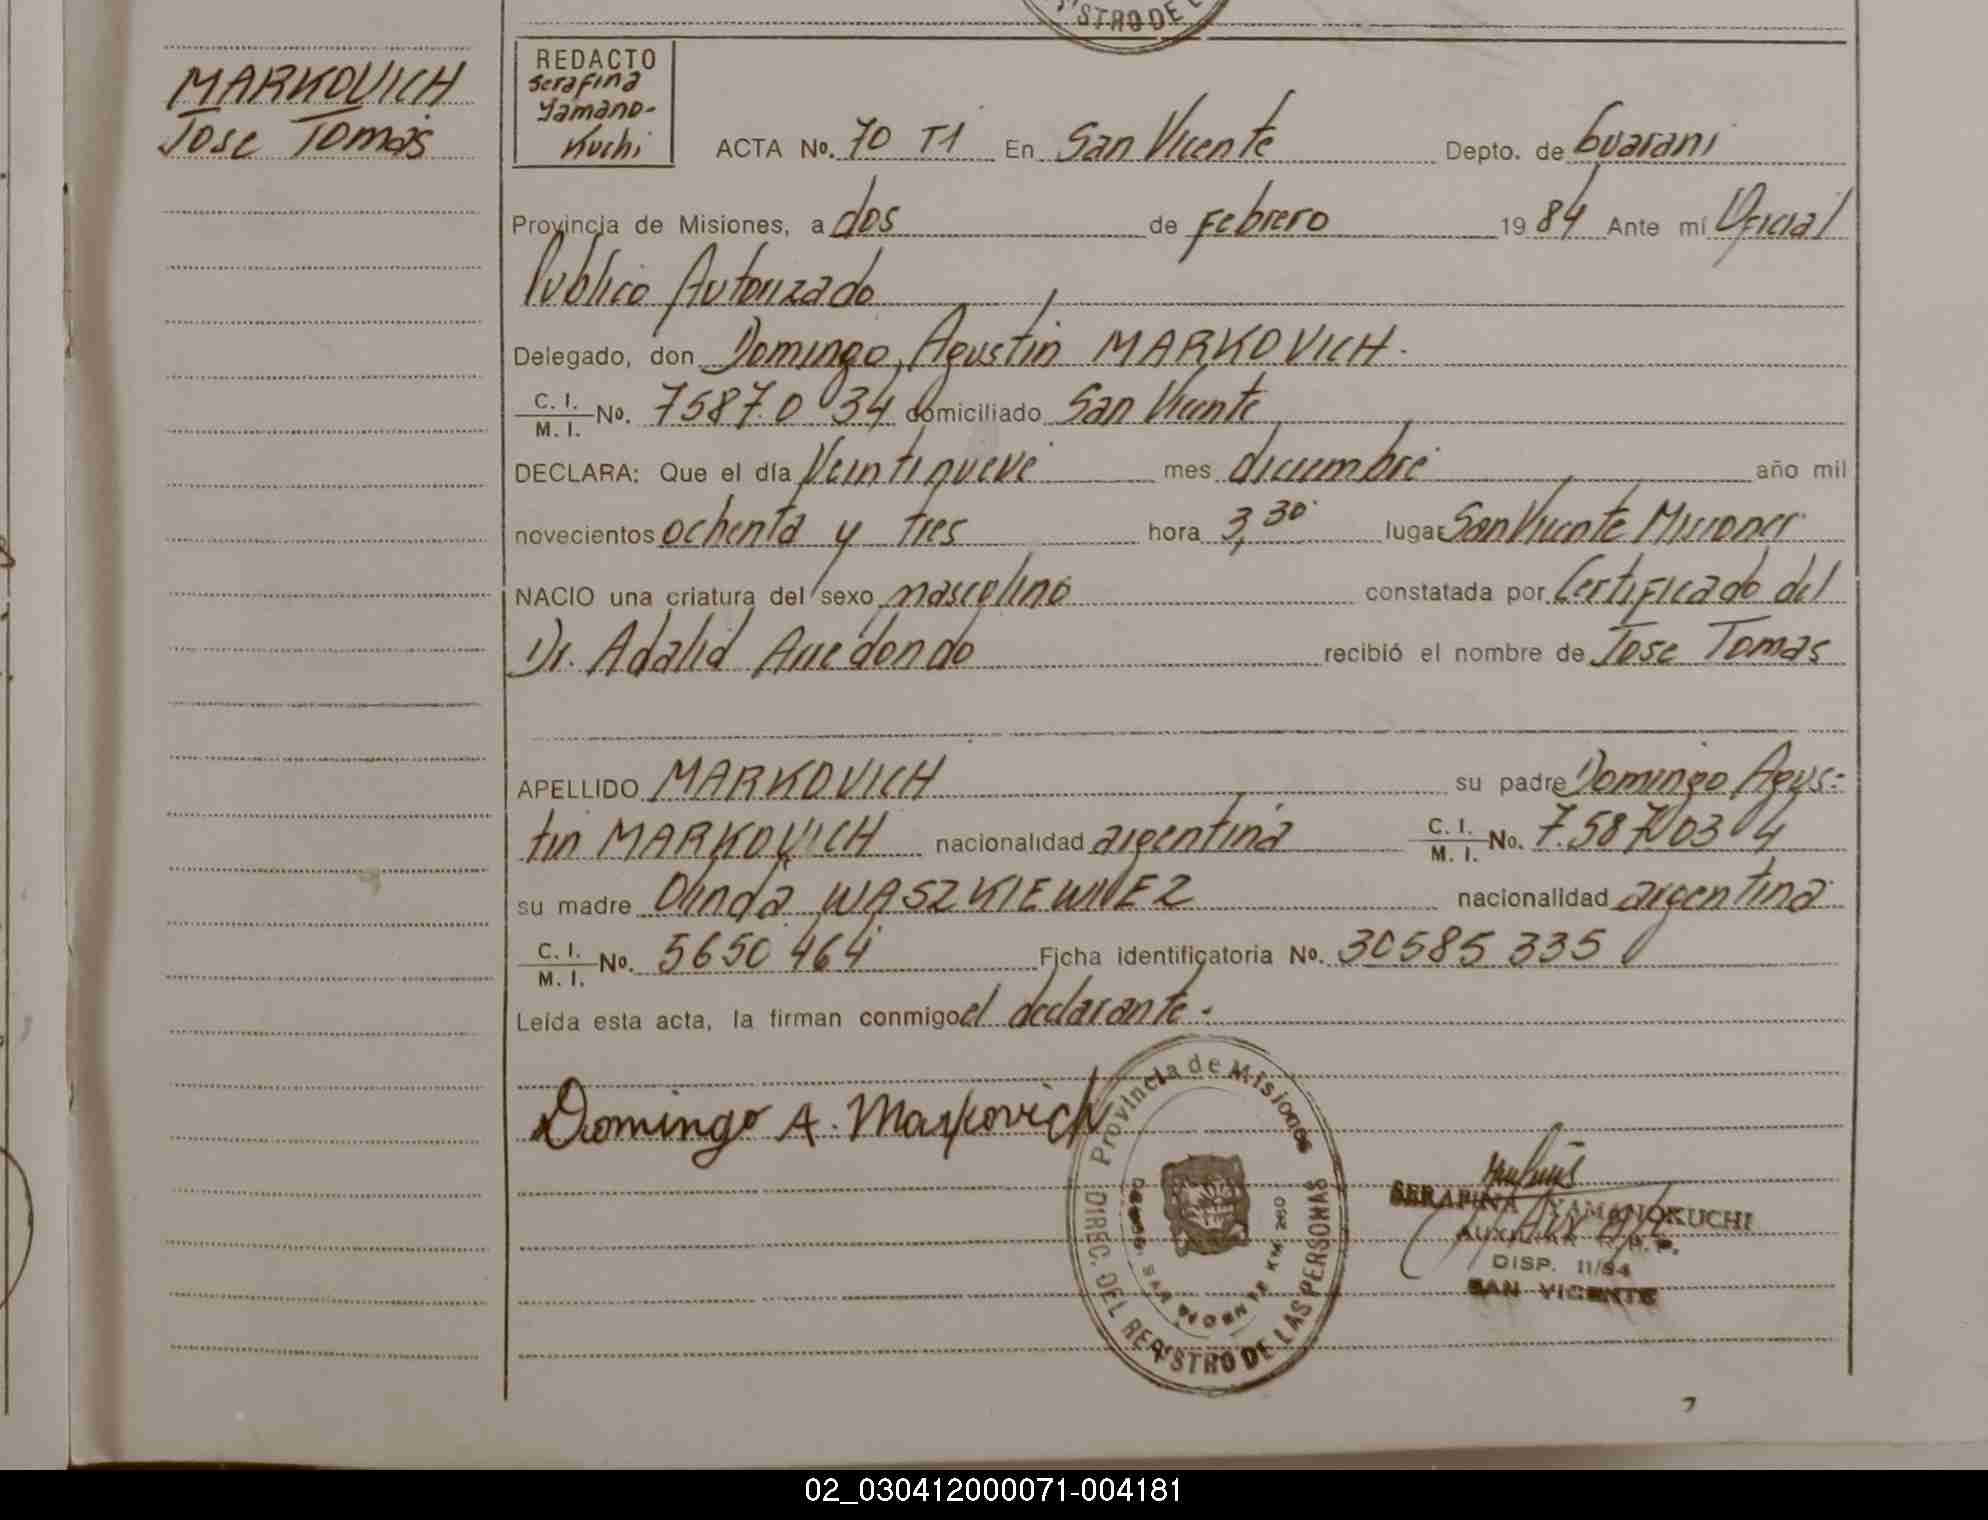 STRO DE L
MARKOVICH
Jose Tomás
REDACTO
Serafina
Yamano-
Kuchi
ACTA No. 70 T1 En San Vicente Depto. de Guarani
Provincia de Misiones, a dos de Febrero 1984 Ante mí Oficial
Publico Autorizado
Delegado, don Domingo Agustin MARKOVICH.
C. I. / M. I. No. 7587.034 domiciliado San Vicente
DECLARA: Que el día Veintinueve mes diciembre año mil
novecientos ochenta y tres hora 3,30 lugar San Vicente Misiones
NACIO una criatura del sexo masculino constatada por Certificado del
Dr. Adalid Arredondo recibió el nombre de Jose Tomas
APELLIDO MARKOVICH su padre Domingo Agus-
tin MARKOVICH nacionalidad argentina C. I. / M. I. No. 7.587.034
su madre Olinda WASZKIEWIEZ nacionalidad argentina
C. I. / M. I. No. 5650464 Ficha identificatoria No. 30585335
Leída esta acta, la firman conmigo el declarante.
Domingo A. Markovich
Provincia de Misiones
DIREC. DEL REGISTRO DE LAS PERSONAS
SERAFINA YAMANOKUCHI
AUXILIAR
DISP. 11/84
SAN VICENTE
02_030412000071-004181